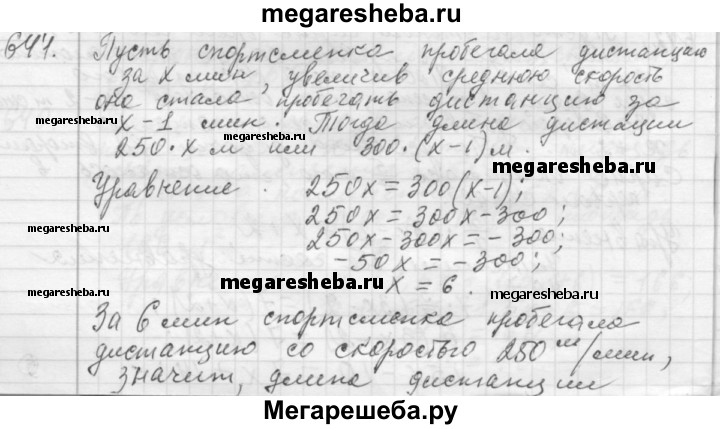 megaresheba.ru
644. Пусть спортсменка пробегала дистанцию
за x мин, увеличив среднюю скорость
она стала пробегать дистанцию за
megaresheba.ru x-1 мин. Тогда длина дистации megaresheba.ru
250·x м или 300·(x-1) м.
megaresheba.ru
Уравнение. 250x = 300(x-1);
250x = 300x-300;
megaresheba.ru 250x-300x = -300; megaresheba.ru
-50x = -300;
megaresheba.ru megaresheba.ru x = 6. megaresheba.ru
За 6 мин спортсменка пробегала
дистанцию со скоростью 250 м/мин,
значит, длина дистанции
Мегарешеба.ру